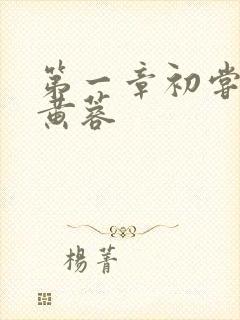 第一章初尝
黄蓉
杨菁